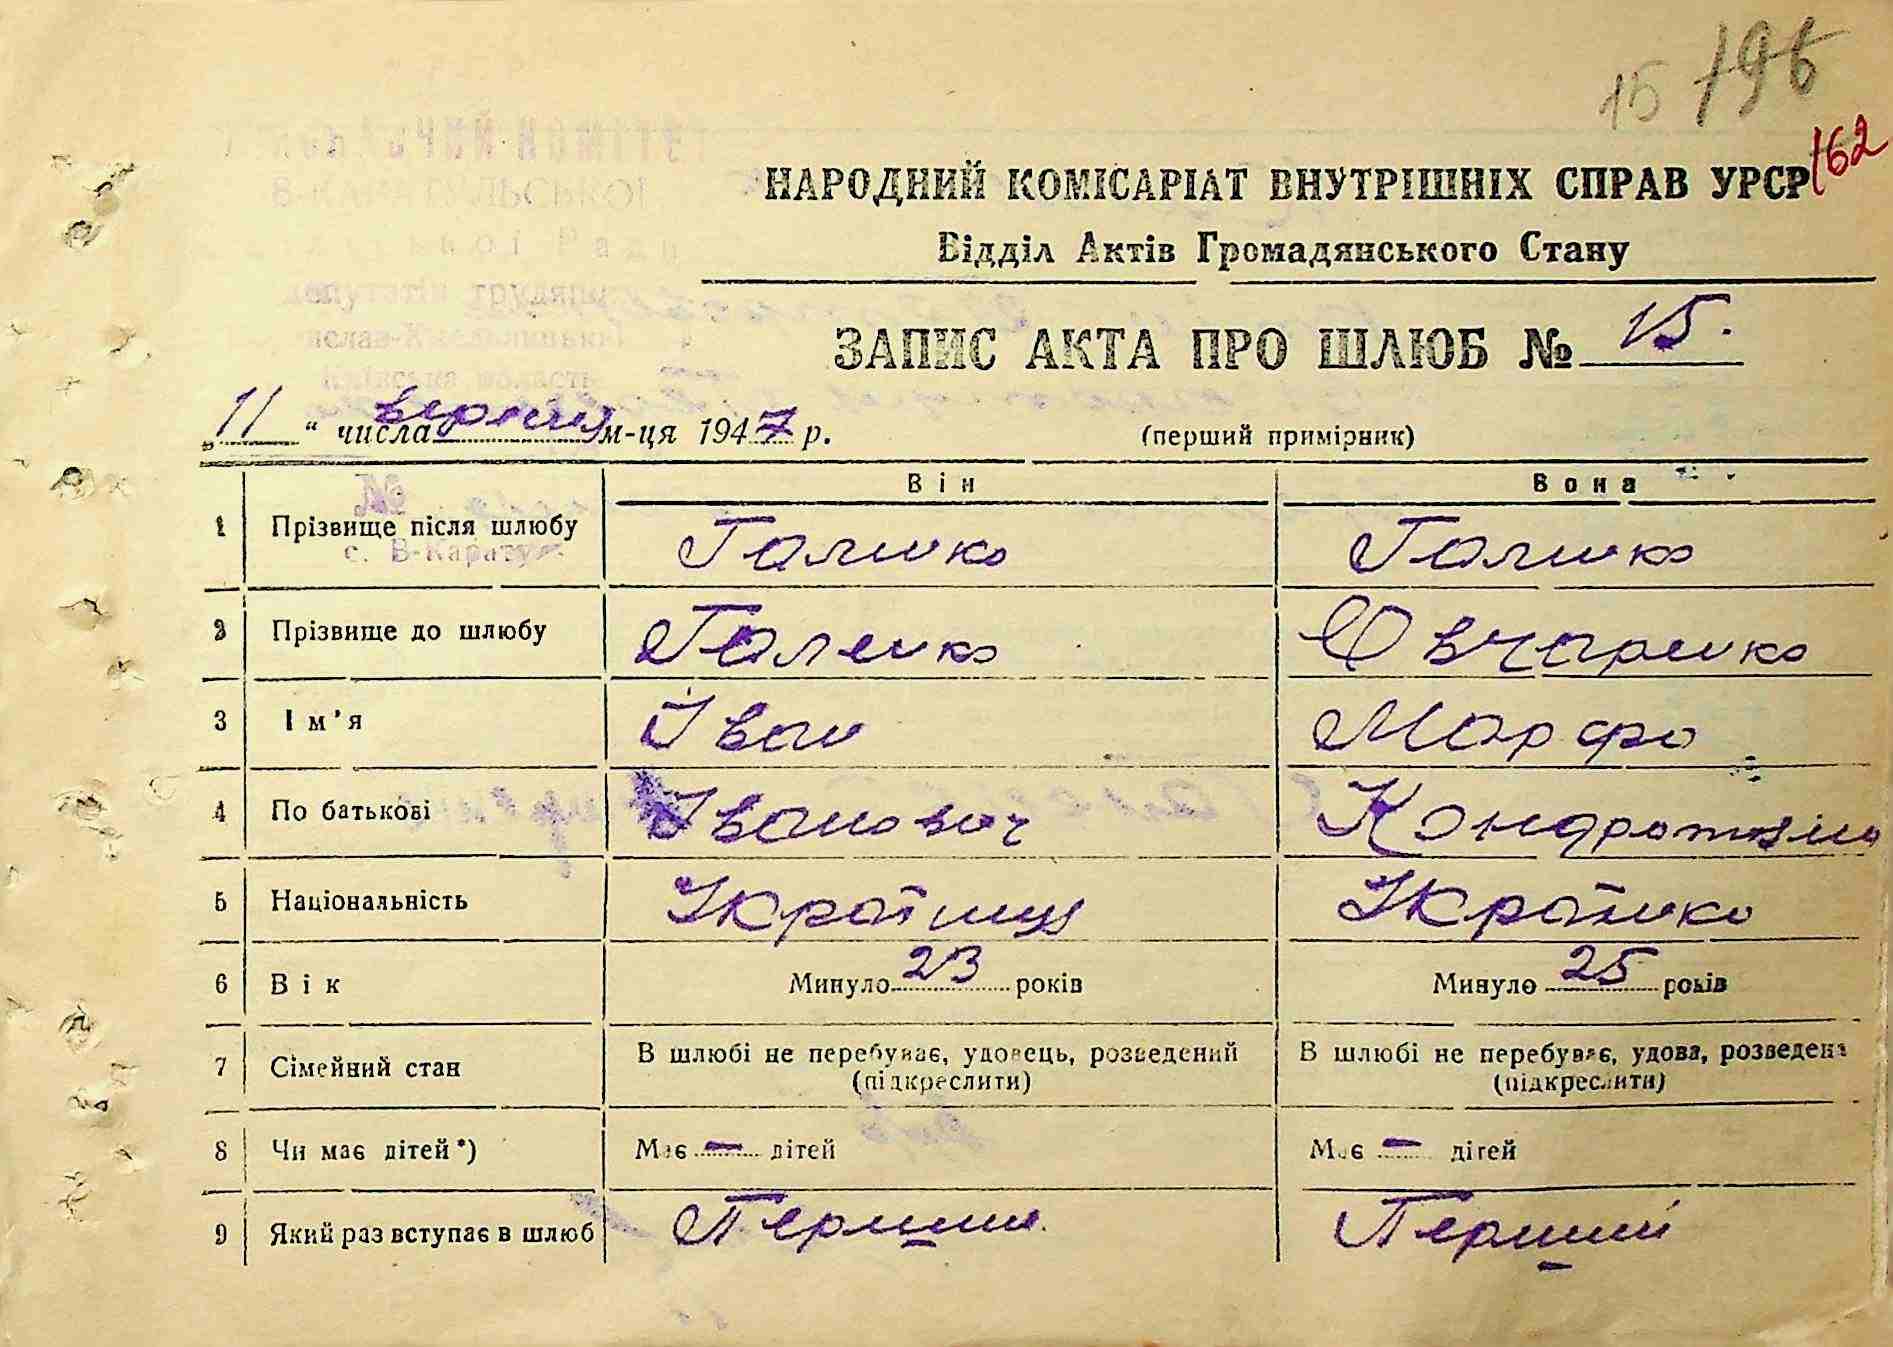 15 196
162
НАРОДНИЙ КОМІСАРІАТ ВНУТРІШНІХ СПРАВ УРСР
Відділ Актів Громадянського Стану
ЗАПИС АКТА ПРО ШЛЮБ № 15.
„11“ числа верзня м-ця 1947 р. (перший примірник)
Він Вона
1 Прізвище після шлюбу Галенко Галенко
с. В-Каратул
2 Прізвище до шлюбу Галенко Овчаренко
3 Ім'я Іван Марфа
4 По батькові Іванович Кондратівна
5 Національність Українець Українка
6 Вік Минуло 23 років Минуло 25 років
7 Сімейний стан В шлюбі не перебуває, удовець, розведений В шлюбі не перебуває, удова, розведена
(підкреслити) (підкреслити)
8 Чи має дітей*) Має — дітей Має — дітей
9 Який раз вступає в шлюб Перший Перший